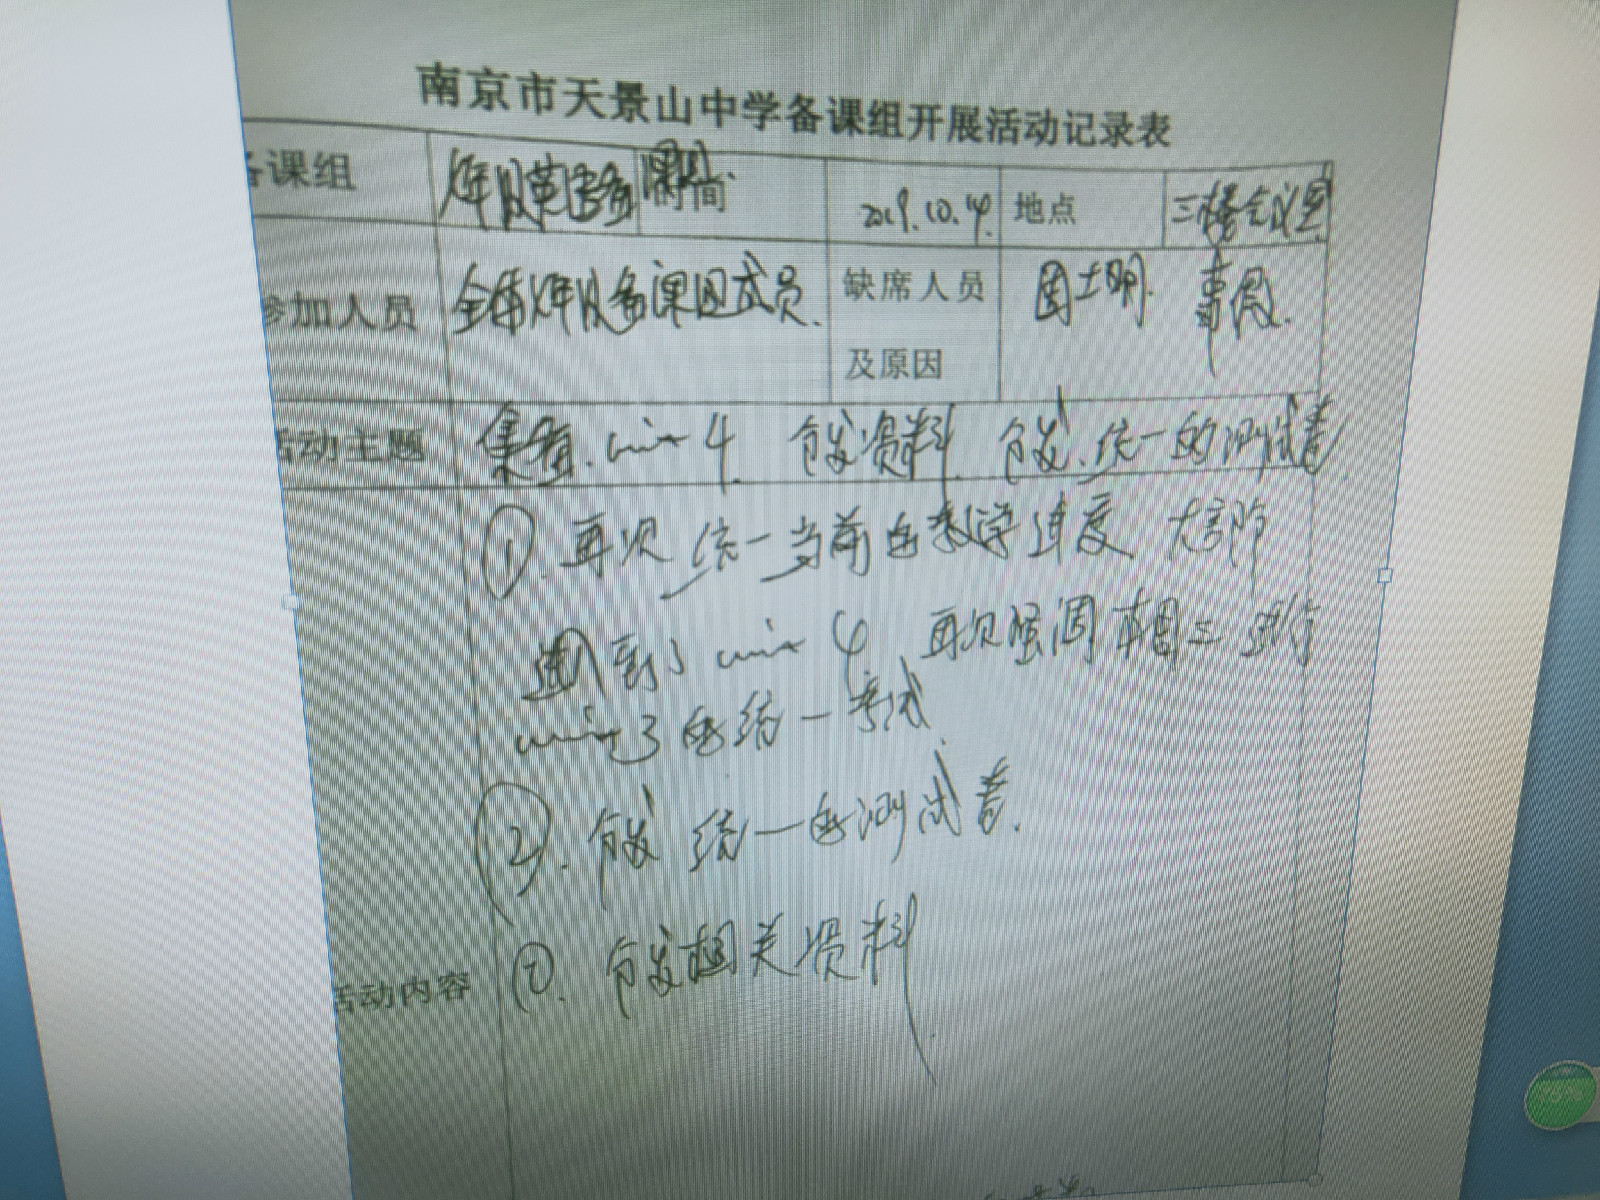 南京市天景山中学备课组开展活动记录表
备课组 年级英语备课组 时间 2019.10.14. 地点 三楼会议室
参加人员 全体年级备课组成员. 缺席人员及原因 周士明. 事假.
活动主题 集备. unit 4. 分发资料 分发统一的测试卷
①. 再次统一当前的教学进度 大部
进到了 unit 4 再次强调本周三进行
unit 3的统一考试
②. 分发 统一的测试卷.
分发相关资料
活动内容